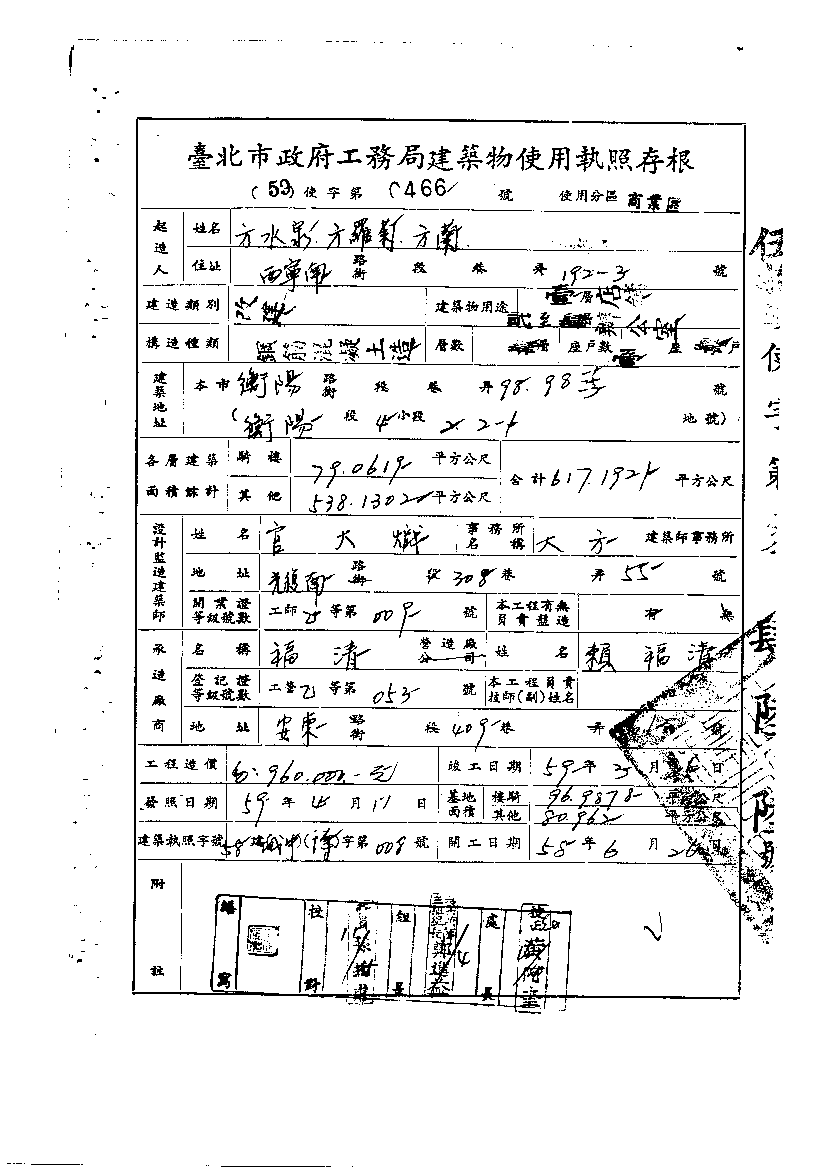 臺北市政府工務局建築物使用執照存根
(59)使字第0466號 使用分區 商業區
起造人 姓名 方水泉 方羅菊 方蘭
住址 西寧南 路街 段 巷 弄 192-3 號
建造類別 改建 建築物用途 壹層店舖
貳至 層辦公室
構造種類 鋼筋混凝土造 層數 層 座戶數 壹 座 戶
建築地址 本市 衡陽 路街 段 巷 弄 98. 98 號
(衡陽 段 4 小段 2. 2-1 地號)
各層建築面積總計 騎樓 79.0619 平方公尺 合計 617.1921 平方公尺
其他 538.1302 平方公尺
設計監造建築師 姓名 官大 事務所名稱 大方 建築師事務所
地址 光復南 路街 段 308 巷 弄 55 號
開業證等級號數 工師 等第 009 號 本工程有無負責監造 有 無
承造廠商 名稱 福清 營造廠公司 姓名 賴福清
登記證等級號數 工營乙等第 053 號 本工程負責技師(副)姓名
地址 安東 路街 段 409 巷 弄 號
工程造價 960.000.-元 竣工日期 59 年 3 月 日
發照日期 59 年 4 月 11 日 基地面積 樓騎 96.9878 平方公尺
其他 80.962 平方公尺
建築執照字號 58 建 字第 009 號 開工日期 58 年 6 月 26 日
附註
繕寫 校對 組長 處長